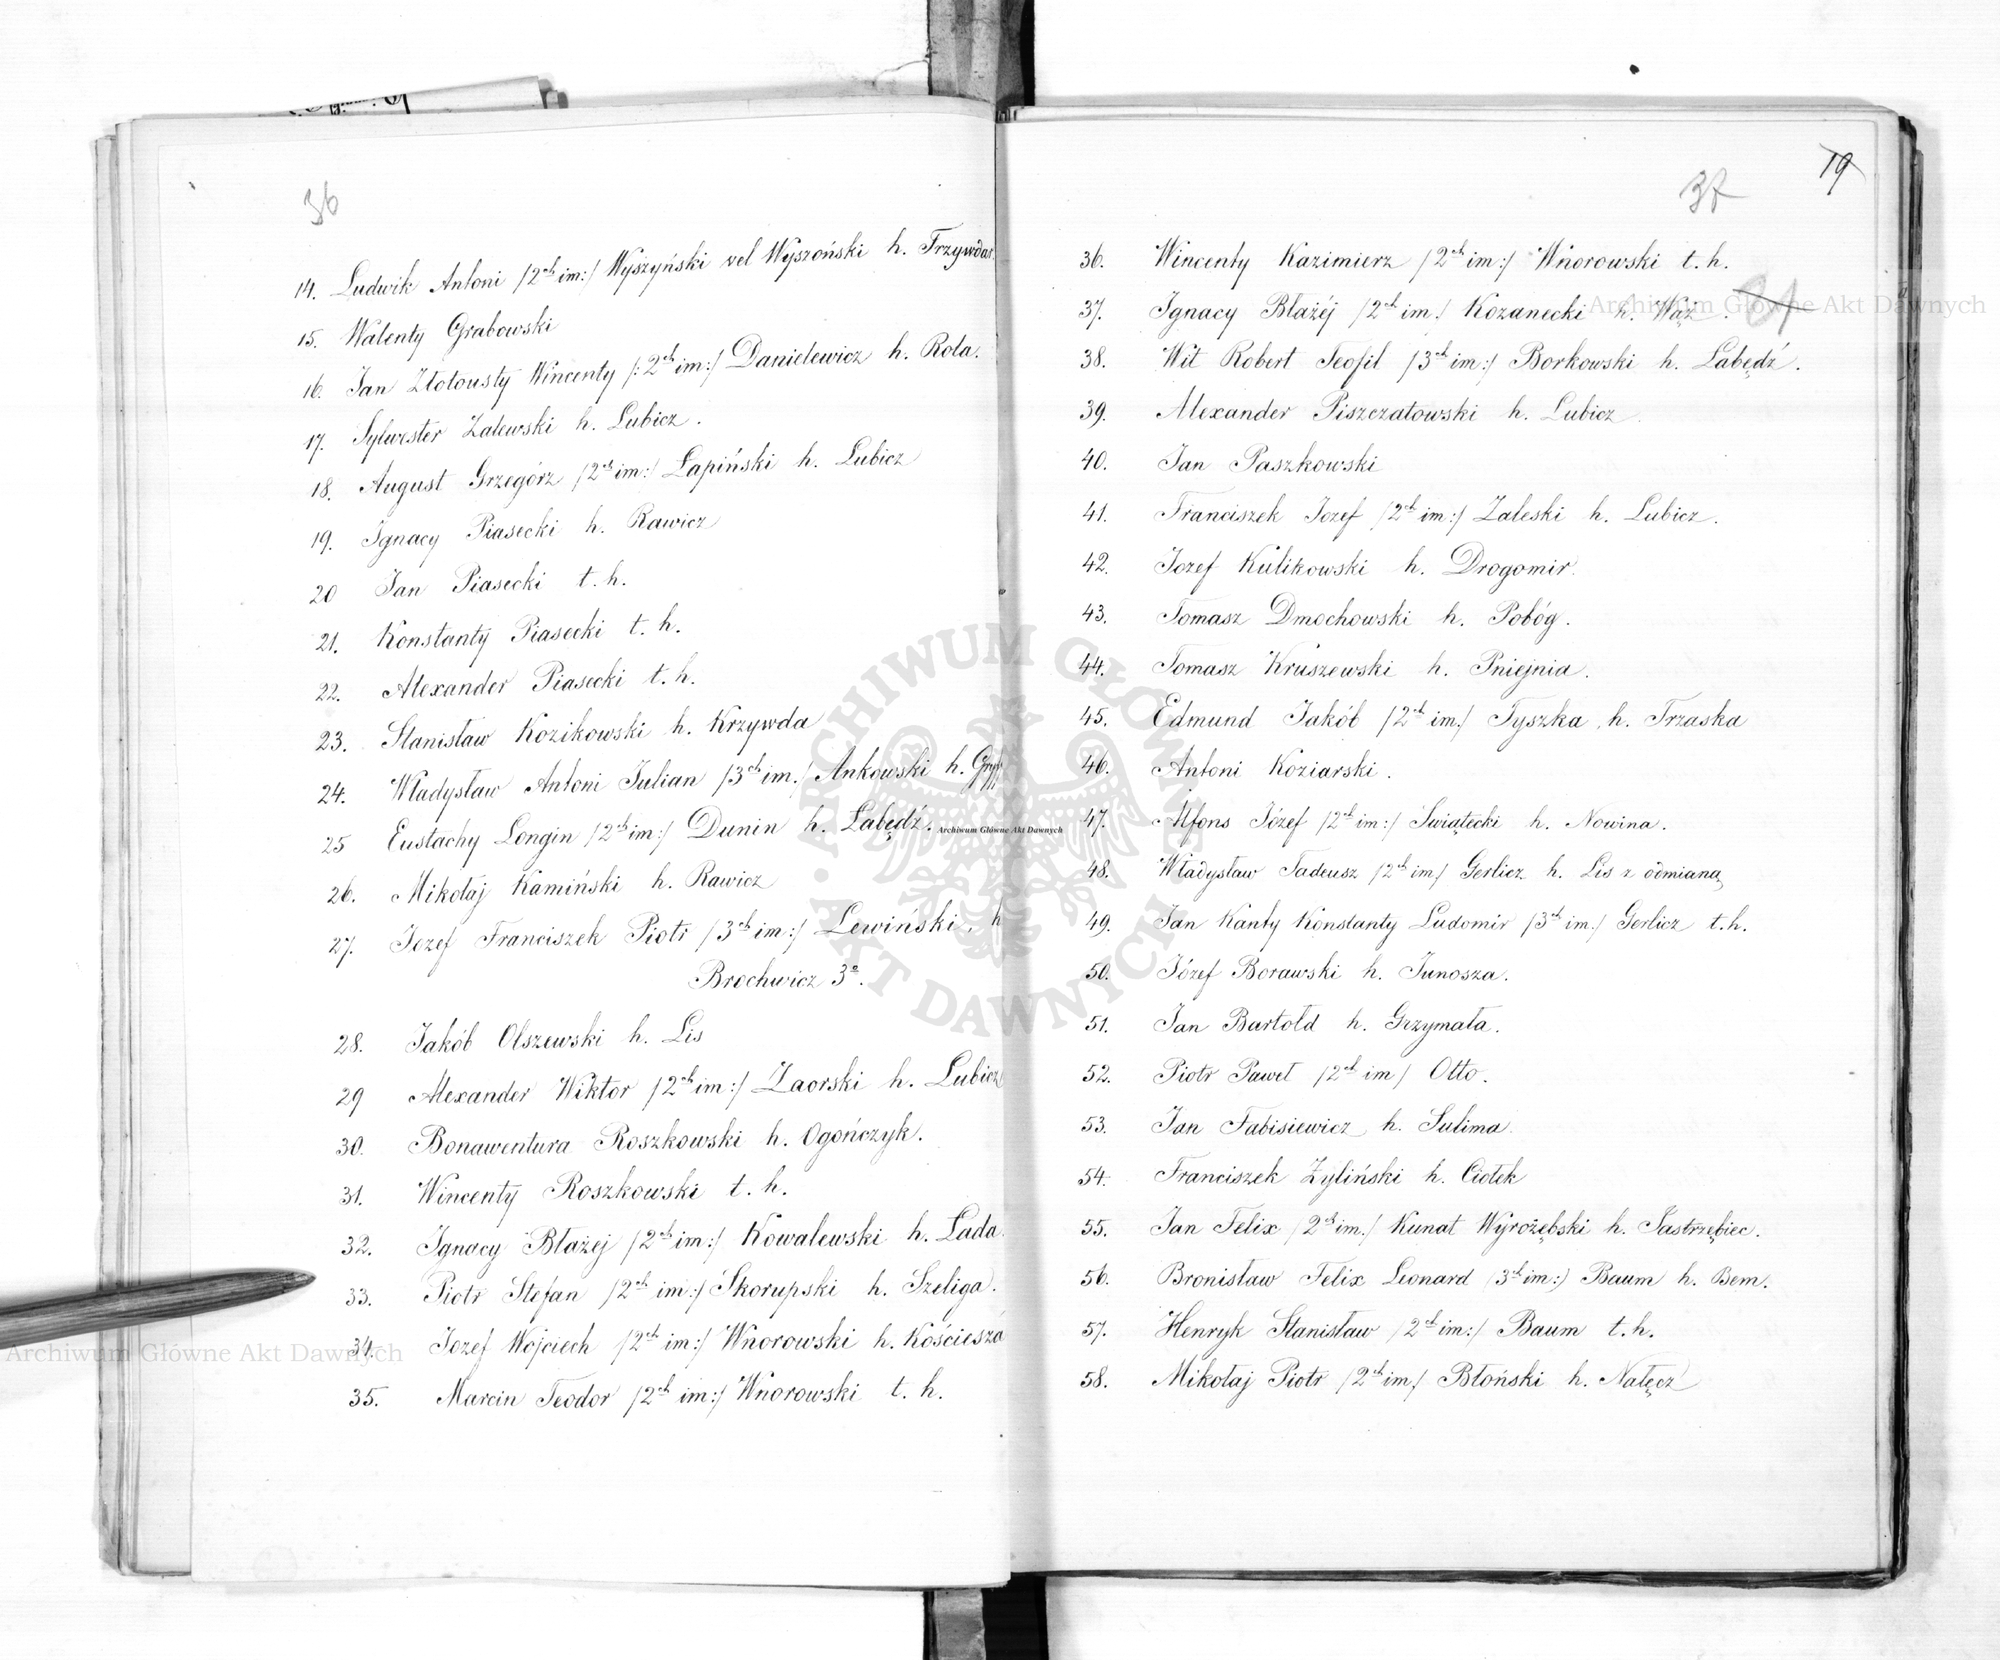 36
14. Ludwik Antoni /2ch im:/ Wyszyński vel Wyszoński h. Trzywdar
15. Walenty Grabowski
16. Jan Złotousty Wincenty /:2ch im:/ Danielewicz h. Rola.
17. Sylwester Zalewski h. Lubicz.
18. August Grzegórz /2ch im:/ Łapiński h. Lubicz
19. Ignacy Piasecki h. Rawicz
20 Jan Piasecki t. h.
21. Konstanty Piasecki t. h.
22. Alexander Piasecki t. h.
23. Stanisław Kozikowski h. Krzywda
24. Władysław Antoni Julian /3ch im./ Ankowski h. Gryf
25 Eustachy Longin /2ch im:/ Dunin h. Łabędź.
26. Mikołaj Kamiński h. Rawicz
27. Jozef Franciszek Piotr /3ch im:/ Lewiński, h
Brochwicz 3o.
28. Jakób Olszewski h. Lis
29 Alexander Wiktor /2ch im:/ Zaorski h. Lubicz
30. Bonawentura Roszkowski h. Ogończyk.
31. Wincenty Roszkowski t. h.
32. Ignacy Błażej /2ch im:/ Kowalewski h. Łada.
33. Piotr Stefan /2ch im:/ Skorupski h. Szeliga.
34. Jozef Wojciech /2ch im:/ Wnorowski h. Kościesza
35. Marcin Teodor /2ch im:/ Wnorowski t. h.
19
37
36. Wincenty Kazimierz /2ch im:/ Wnorowski t. h.
37. Ignacy Błażéj /2ch im./ Kozanecki h. Wąż.
38. Wit Robert Teofil /3ch im:/ Borkowski h. Łabędź.
39. Alexander Piszczatowski h. Lubicz.
40. Jan Paszkowski
41. Franciszek Jozef /2ch im:/ Zaleski h. Lubicz.
42. Jozef Kulikowski h. Drogomir.
43. Tomasz Dmochowski h. Pobóg.
44. Tomasz Kruszewski h. Pniejnia.
45. Edmund Jakób /2ch im./ Tyszka, h. Trzaska
46. Antoni Koziarski.
47. Alfons Józef /2ch im:/ Swiątecki h. Nowina.
48. Władysław Tadeusz /2ch im/ Gerlicz h. Lis z odmianą
49. Jan Kanty Konstanty Ludomir /3ch im:/ Gerlicz t.h.
50. Józef Borawski h. Junosza.
51. Jan Bartołd h. Grzymała.
52. Piotr Paweł /2ch im/ Otto.
53. Jan Fabisiewicz h. Sulima.
54. Franciszek Zyliński h. Ciołek
55. Jan Felix /2ch im./ Kunat Wyrozębski h. Jastrzębiec.
56. Bronisław Felix Leonard /3ch im:/ Baum h. Bem.
57. Henryk Stanisław /2ch im:/ Baum t.h.
58. Mikołaj Piotr /2ch im/ Błoński h. Nałęcz
Archiwum Główne Akt Dawnych
ARCHIWUM GŁÓWNE AKT DAWNYCH
Archiwum Główne Akt Dawnych
Archiwum Główne Akt Dawnych